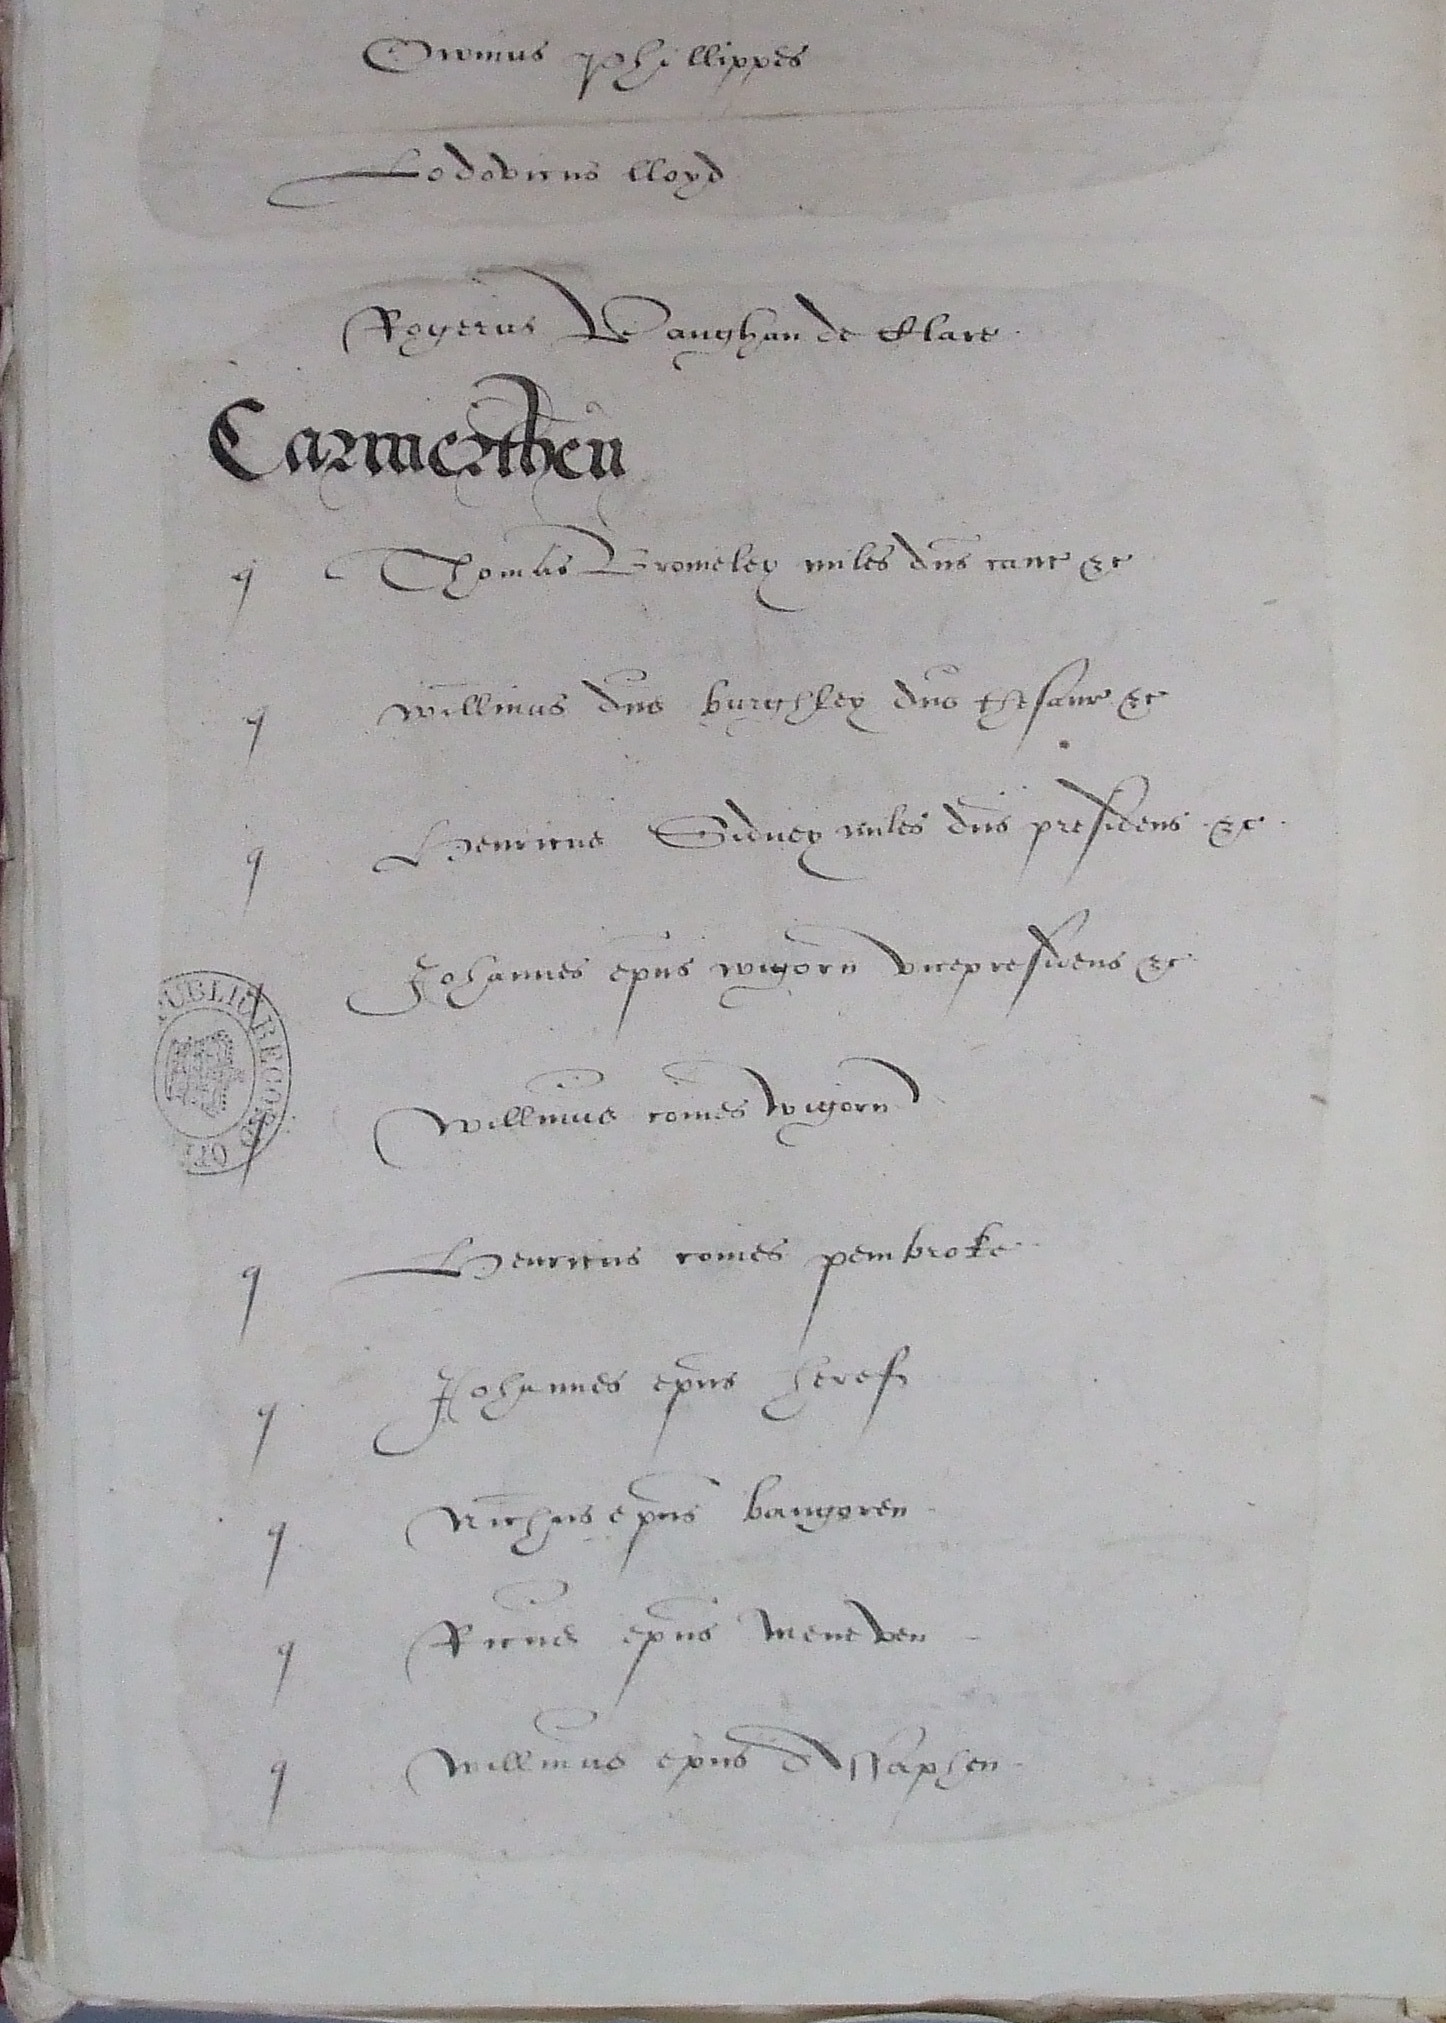 Owinus Phillippes
Lodovicus lloyd
Rogerus Vaughan de Clare
Carmerthen
q Thomas Bromeley miles dns canc &c
q Willmus dns burghley dns thesaur &c
q Henricus Sidney miles dns presidens &c
q Johannes epus wigorn vicepresidens &c
q Willmus comes wigorn
q Henricus comes pembroke
q Johannes epus heref
q Nichus epus bangoren
q Ricus epus meneven
q Willmus epus Assaphen
PUBLIC RECORD OFFI